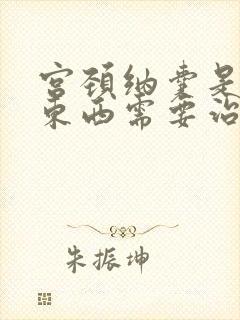 宫颈纳囊是
东西需要治
朱振坤